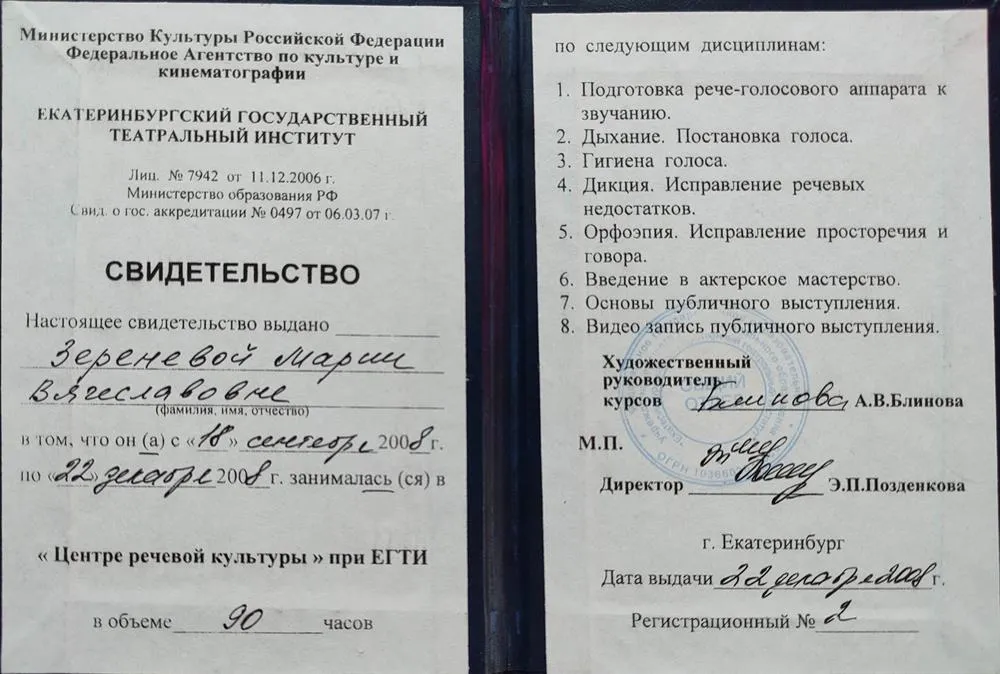 Министерство Культуры Российской Федерации
Федеральное Агентство по культуре и
кинематографии
ЕКАТЕРИНБУРГСКИЙ ГОСУДАРСТВЕННЫЙ
ТЕАТРАЛЬНЫЙ ИНСТИТУТ
Лиц. № 7942 от 11.12.2006 г.
Министерство образования РФ
Свид. о гос. аккредитации № 0497 от 06.03.07 г.
СВИДЕТЕЛЬСТВО
Настоящее свидетельство выдано
Зереневой Марии
Вячеславовне
(фамилия, имя, отчество)
в том, что он (а) с «18» сентября 2008 г.
по «22» декабря 2008 г. занималась (ся) в
« Центре речевой культуры » при ЕГТИ
в объеме 90 часов
по следующим дисциплинам:
1. Подготовка рече-голосового аппарата к
звучанию.
2. Дыхание. Постановка голоса.
3. Гигиена голоса.
4. Дикция. Исправление речевых
недостатков.
5. Орфоэпия. Исправление просторечия и
говора.
6. Введение в актерское мастерство.
7. Основы публичного выступления.
8. Видео запись публичного выступления.
Художественный
руководитель
курсов Блинова А.В.Блинова
М.П.
Директор Э.П.Позденкова
г. Екатеринбург
Дата выдачи 22 декабря 2008 г.
Регистрационный № 2